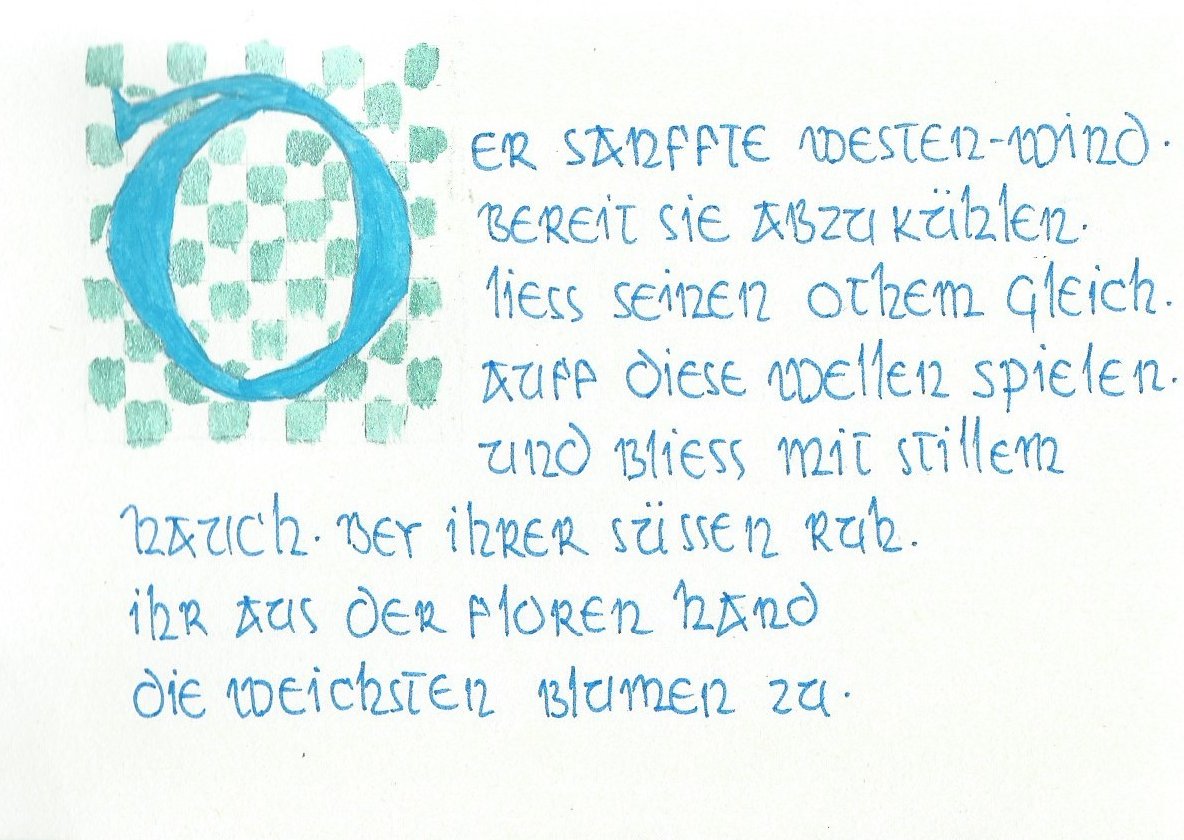 DER SANFFTE WESTEN-WIND.
BEREIT SIE ABZUKÜHLEN.
LIESS SEINEN OTHEM GLEICH.
AUFF DIESE WELLEN SPIELEN.
UND BLIESS MIT STILLEM
HAUCH. BEY IHRER SÜSSEN RUH.
IHR AUS DER FLOREN HAND
DIE WEICHSTEN BLUMEN ZU.